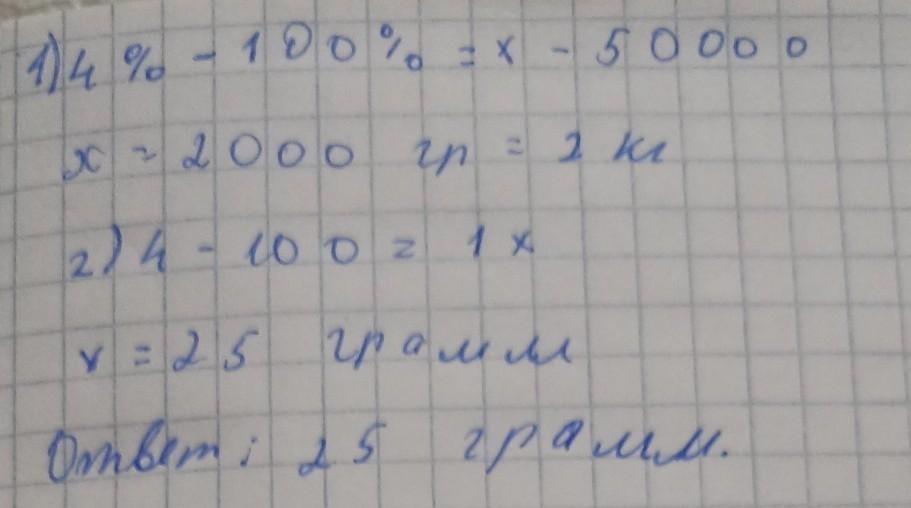 1) 4 % - 100% = x - 50000
x = 2000 гр = 2 кг
2) 4 - 100 = 1 x
x = 25 грамм
Ответ: 25 грамм.